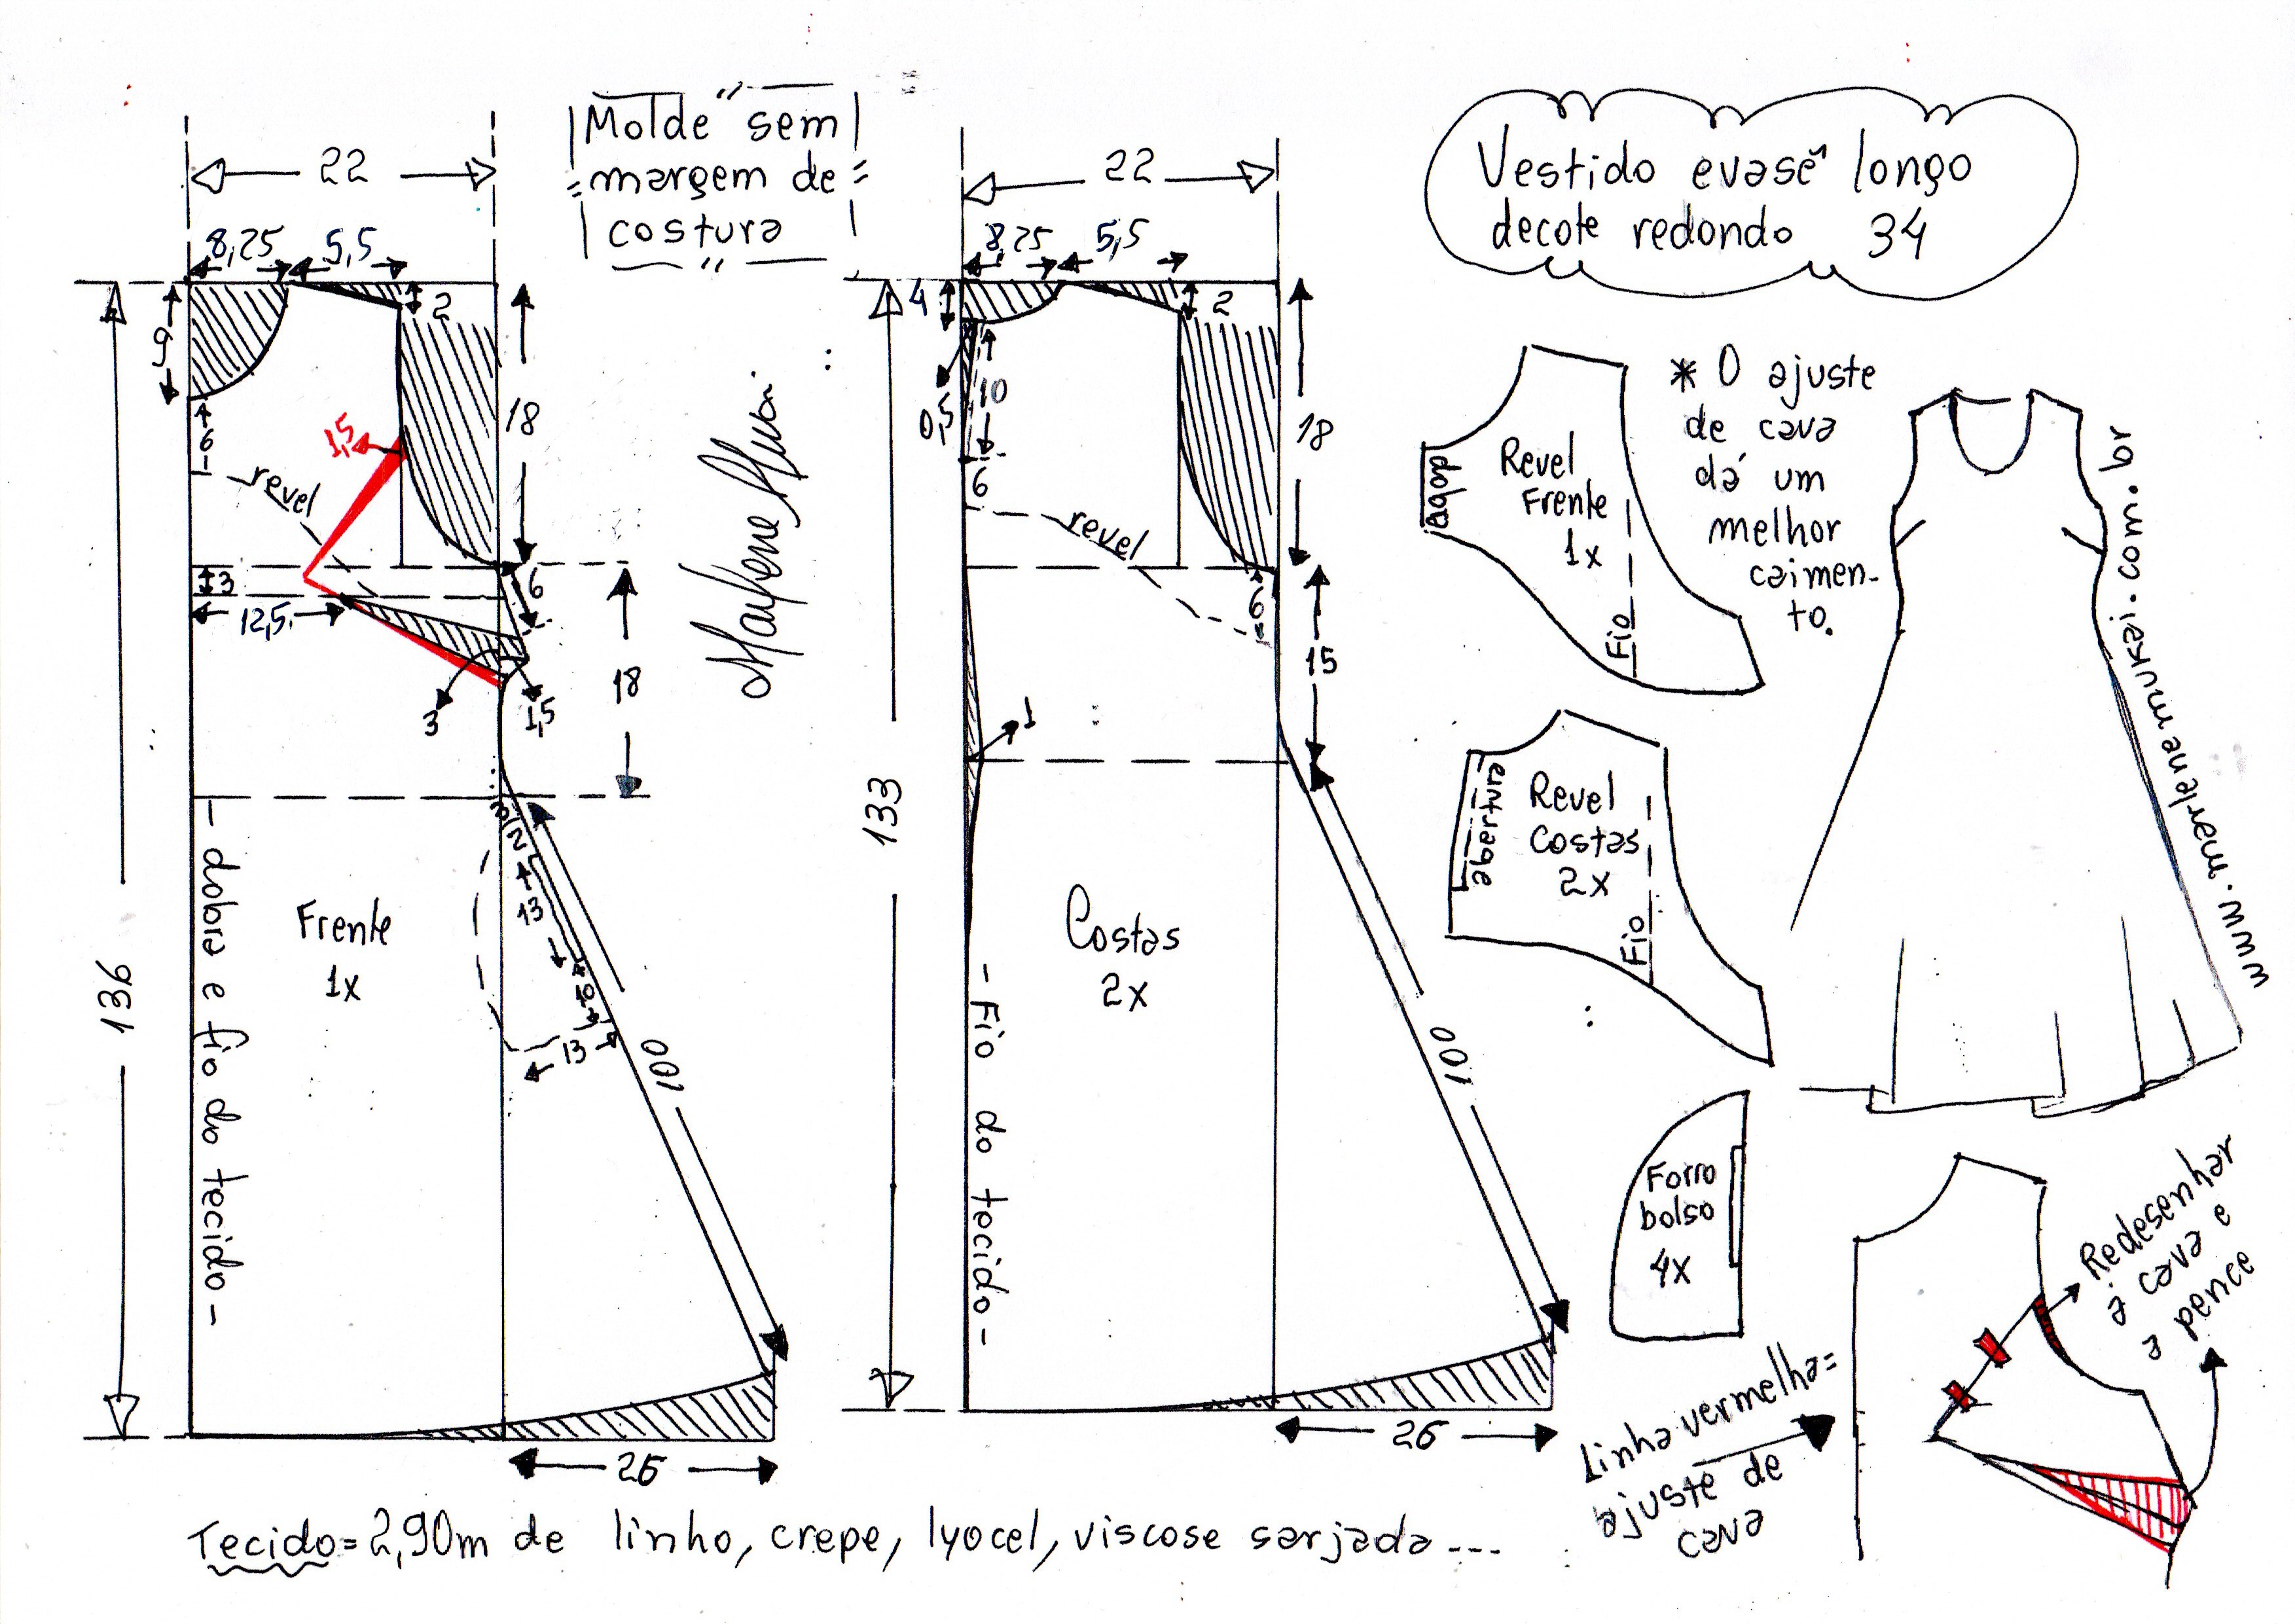 "Molde sem
margem de
costura"
Vestido evasê longo
decote redondo 34
22
8,25 5,5
2
9
6
revel
1,5
18
3
12,5
6
3
1,5
18
136
3
2
13
10
13
100
26
Frente
1x
- dobra e fio do tecido -
22
8,25 5,5
4
2
0,5
10
6
revel
18
6
15
1
133
100
26
Costas
2x
- Fio do tecido -
Revel
Frente
1x
dobra
Fio
* O ajuste
de cava
dá um
melhor
caimen-
to.
www.marlenemukai.com.br
Revel
Costas
2x
abertura
Fio
Forro
bolso
4x
Linha vermelha=
ajuste de
cava
Redesenhar
a cava e
a pence
Tecido= 2,90m de linho, crepe, lyocel, viscose sarjada ...
Marlene Mukai